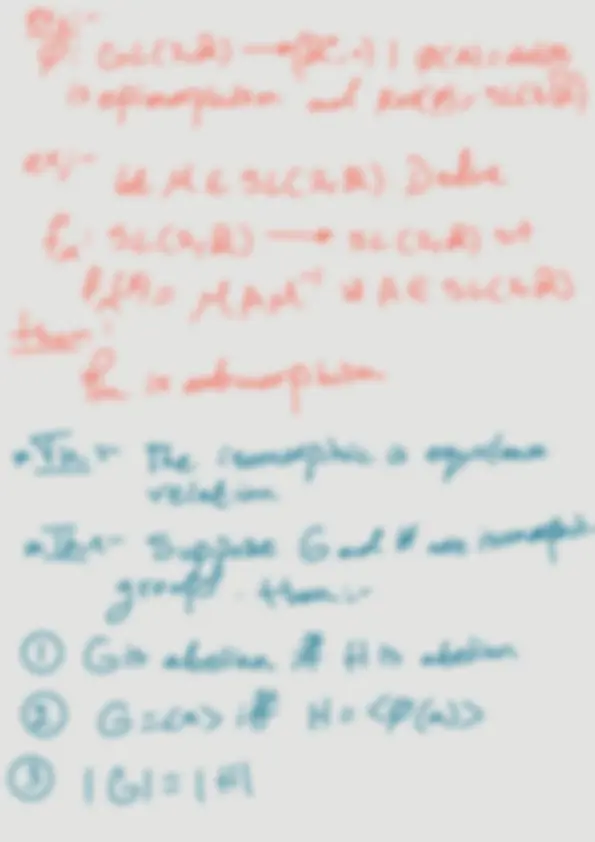 Ex:-
φ: GL(2,R) → (R*, ·) | φ(A) =
is epimorphism and Ker(φ) = SL(2,R)
ex:- let M ∈ SL(2,R) Define
f_M: SL(2,R) → SL(2,R) s.t
f_M(A) = M A M⁻¹ ∀ A ∈ SL(2,R)
then:
f_M is automorphism
*Th:- The isomorphic is equivalence
relation
*Th:- Suppose G and H are isomorphic
groups. then:-
① G is abelian iff H is abelian
② G = <a> iff H = <φ(a)>
③ |G| = |H|